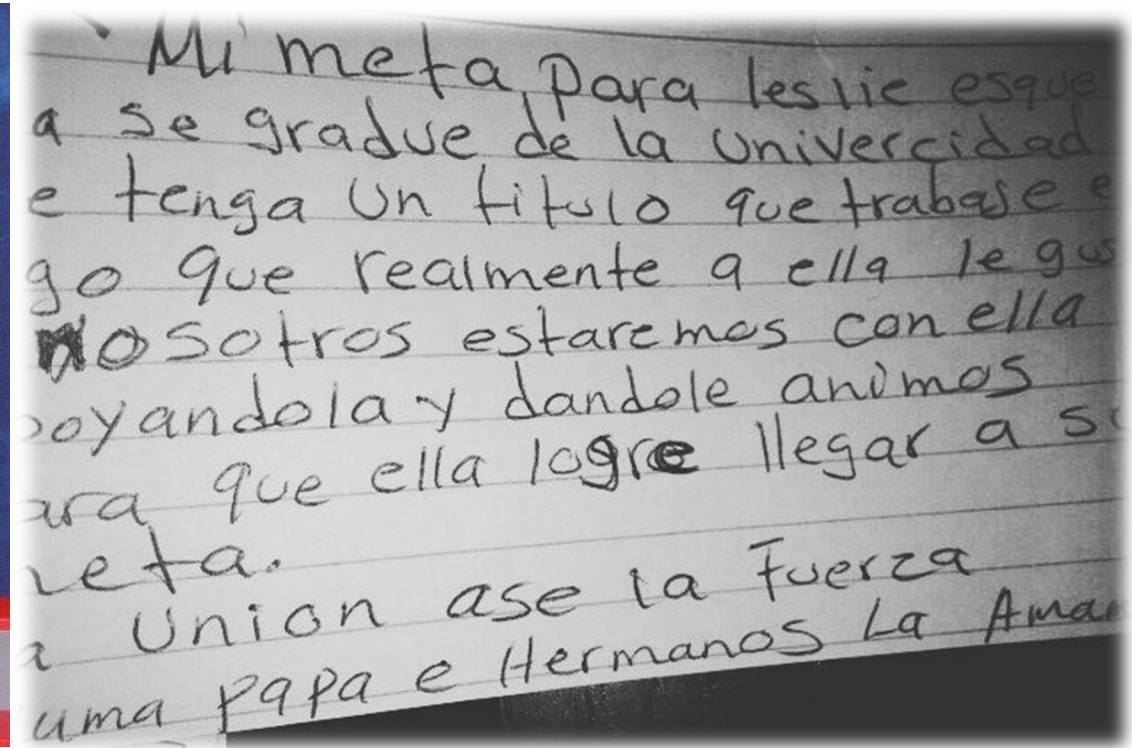 Mi meta para leslie esque
a se gradue de la univercidad
e tenga un titulo que trabaje e
go que realmente a ella le gus
nosotros estaremos con ella
oyandola y dandole animos
ara que ella logre llegar a su
eta.
a Union ase la Fuerza
uma papa e Hermanos La Aman